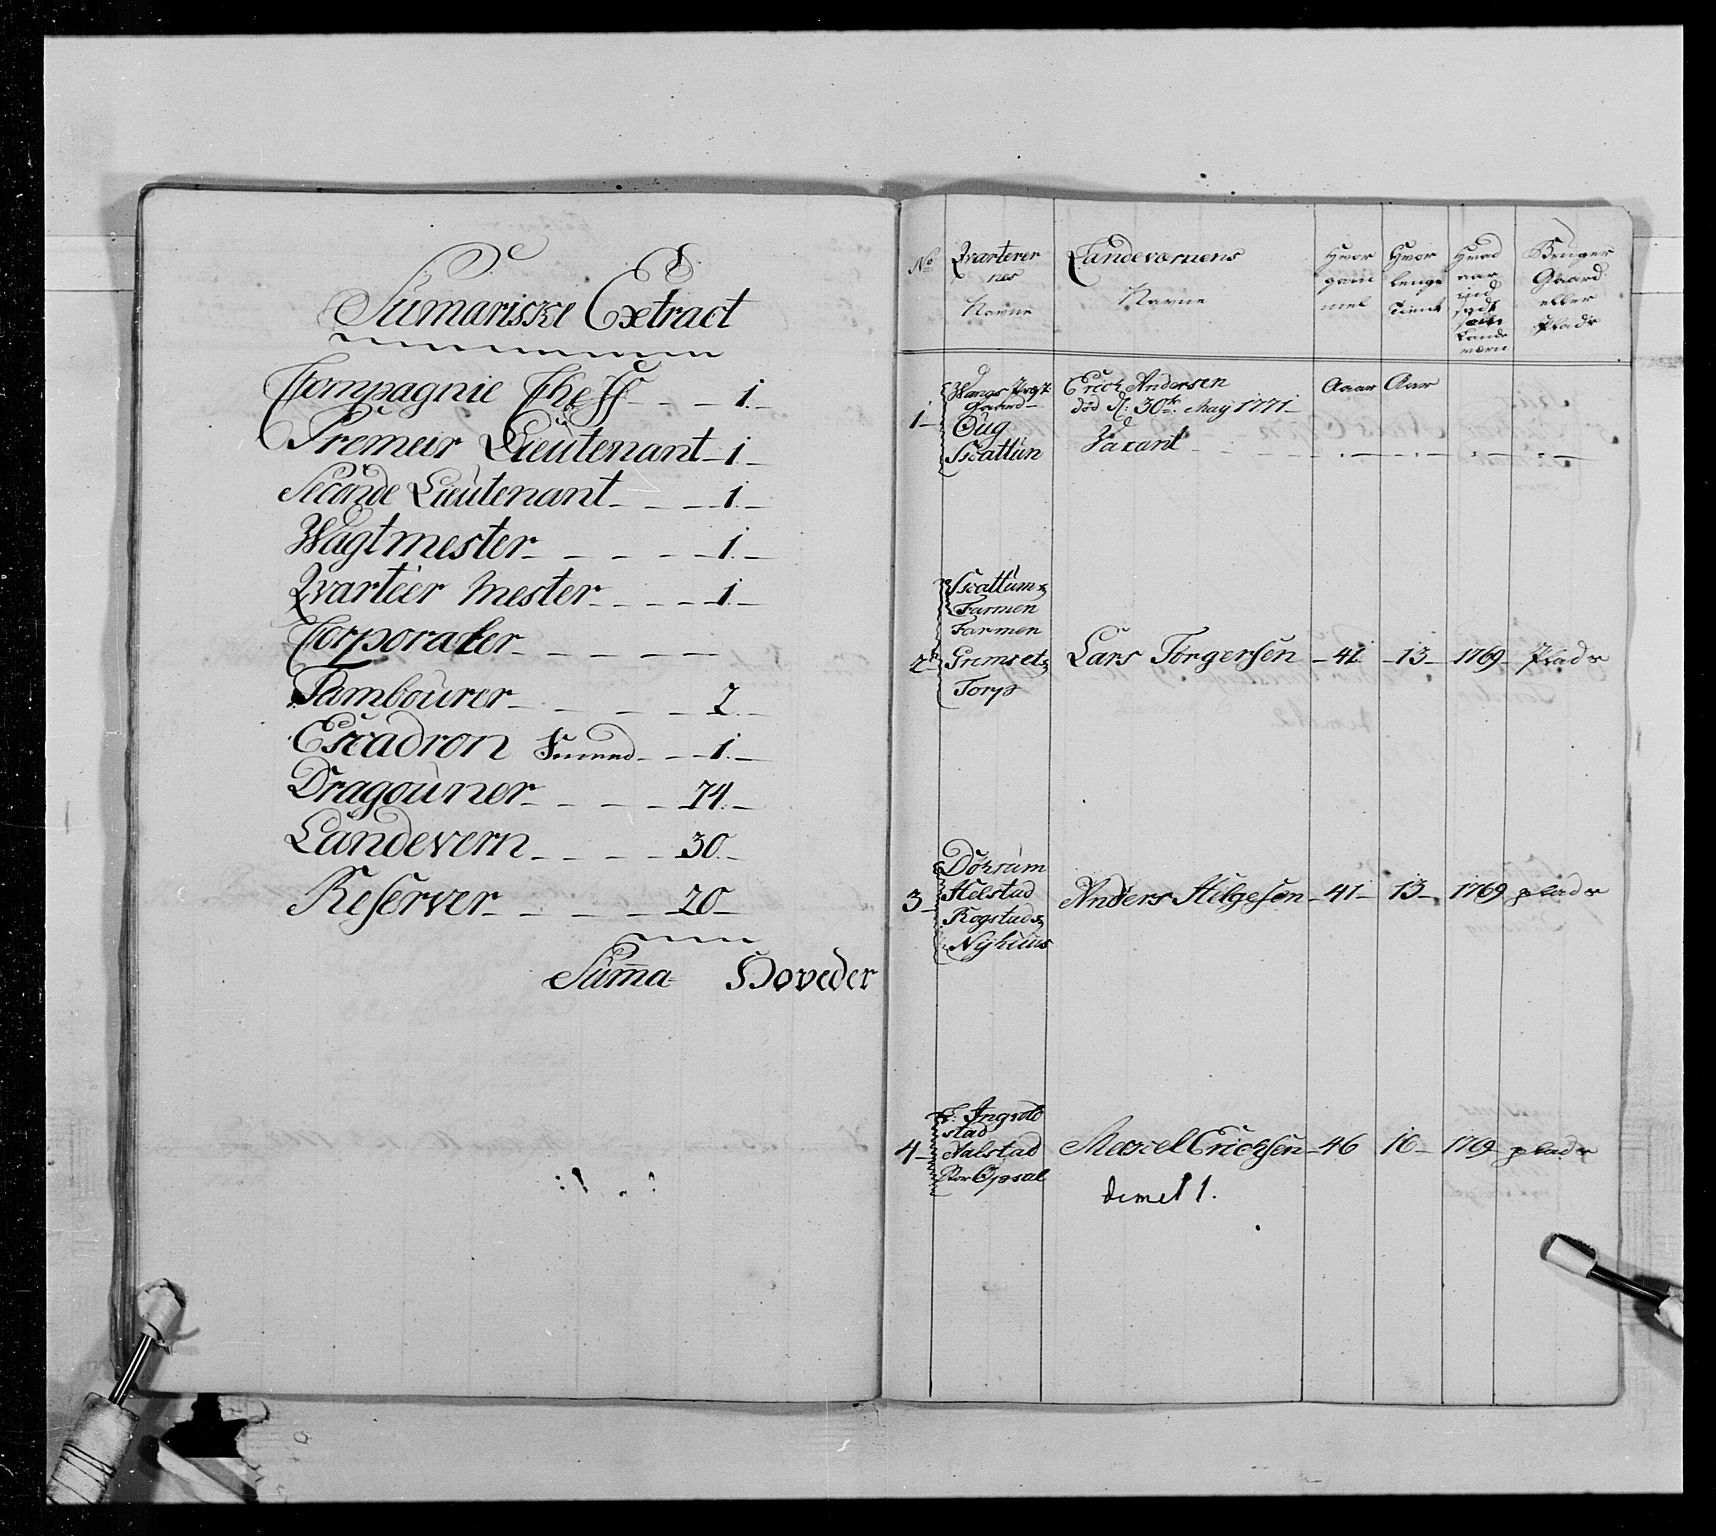 Sumariske Extract
Compagnie Cheff - - - 1.-
Premeir Lieutenant - 1.-
Seconde Lieutenant - - - 1.-
Wagtmester - - - - - 1.-
Qvarteer Mester - - - - 1.-
Corporaler - - - - -
Tambourer - - - - 2.-
Escadron Smed - - - 1.-
Dragouner - - - - 74.-
Landevern - - - - 30.-
Reserver - - - - 20-
Summa Hoveder
No
Qvarterer
nes
Navne
Landeværnens
Navne
Hvor
gam
mel
Hvor
lenge
tient
Hvad
aar
ind
sadt
som
Lande
værn
Bruger
Gaard
eller
Plads
Aaar Aar
1 -
Gaard -
Oug
Skattun
Erich Andersen
död d: 30te May 1771 -
Vacant - - - - - - -
2 -
Skattum
Farmen
Farmen
Grimset
Torp
Lars Torgersen - 41 - 13 - 1769 - Plads
3 -
Dohrum
Helstad
Rogstad
Nyhuus
Anders Helgesen - 41 - 13 - 1769 plads
4 -
Ingvold
stad
Valstad
Stor Opsal
Marcel Erichsen - 46 16 - 1769 - plads
dimet 1.